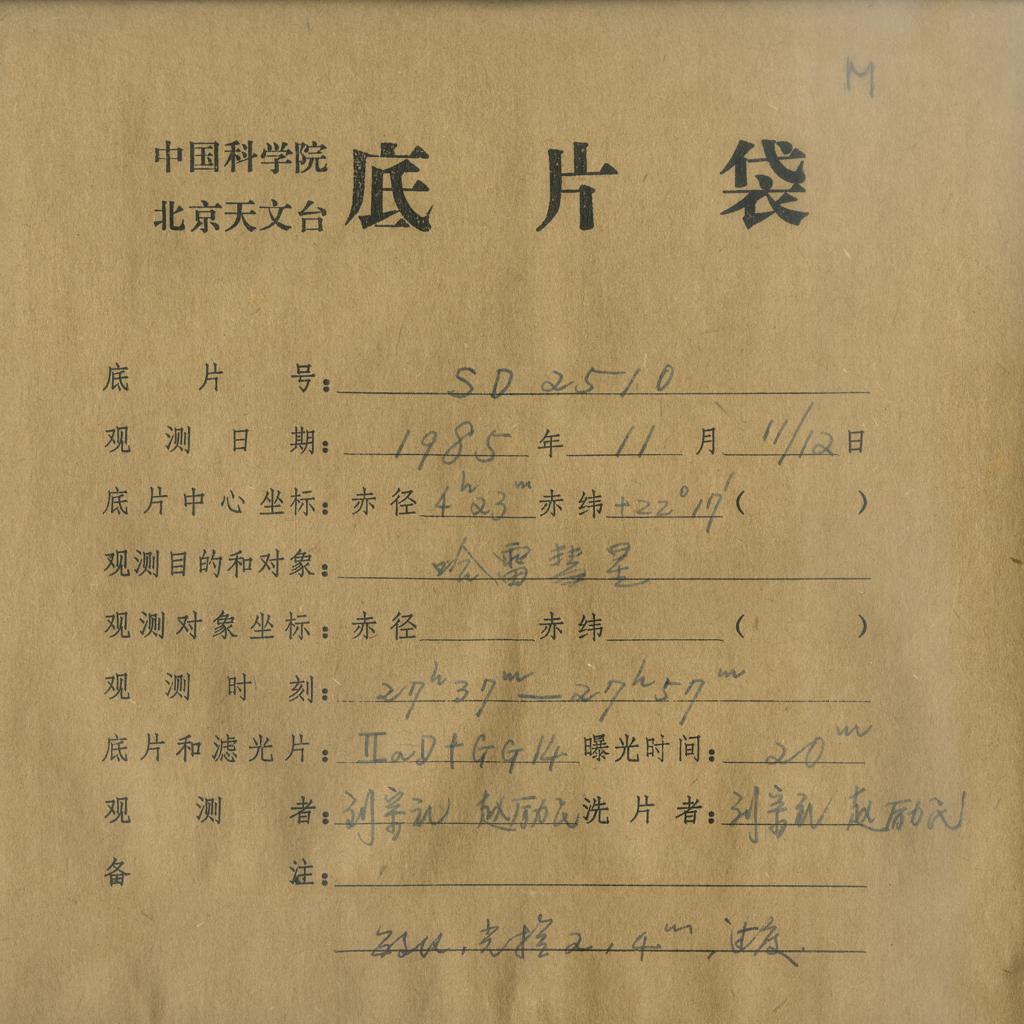 M
中国科学院
北京天文台
底片袋
底片号: SD 2510
观测日期: 1985年11月11/12日
底片中心坐标: 赤径 4h23m 赤纬 +22°17′ ( )
观测目的和对象: 哈雷彗星
观测对象坐标: 赤径 赤纬 ( )
观测时刻: 27h37m—27h57m
底片和滤光片: ⅡaD+GG14 曝光时间: 20m
观测者: 刘宗礼 赵励民 洗片者: 刘宗礼 赵励民
备注:
敏化, 光楔 2, 4m, 过度.